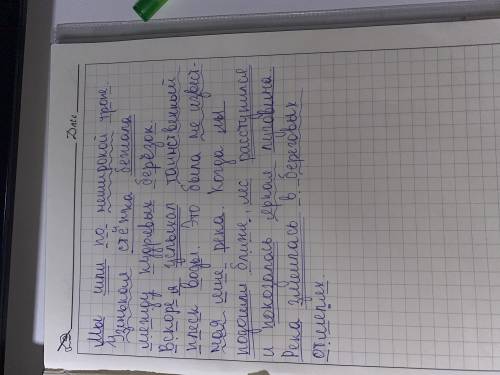 Мы шли по неширокой тропе.
Узенькая стёжка бежала
между кудрявых берёзок.
Вскоре я услыхал таинственный
плеск воды. Это была не извест-
ная мне река. Когда мы
подошли ближе, лес расступился
и показалась яркая луговина.
Река змеилась в береговых
отмелях.